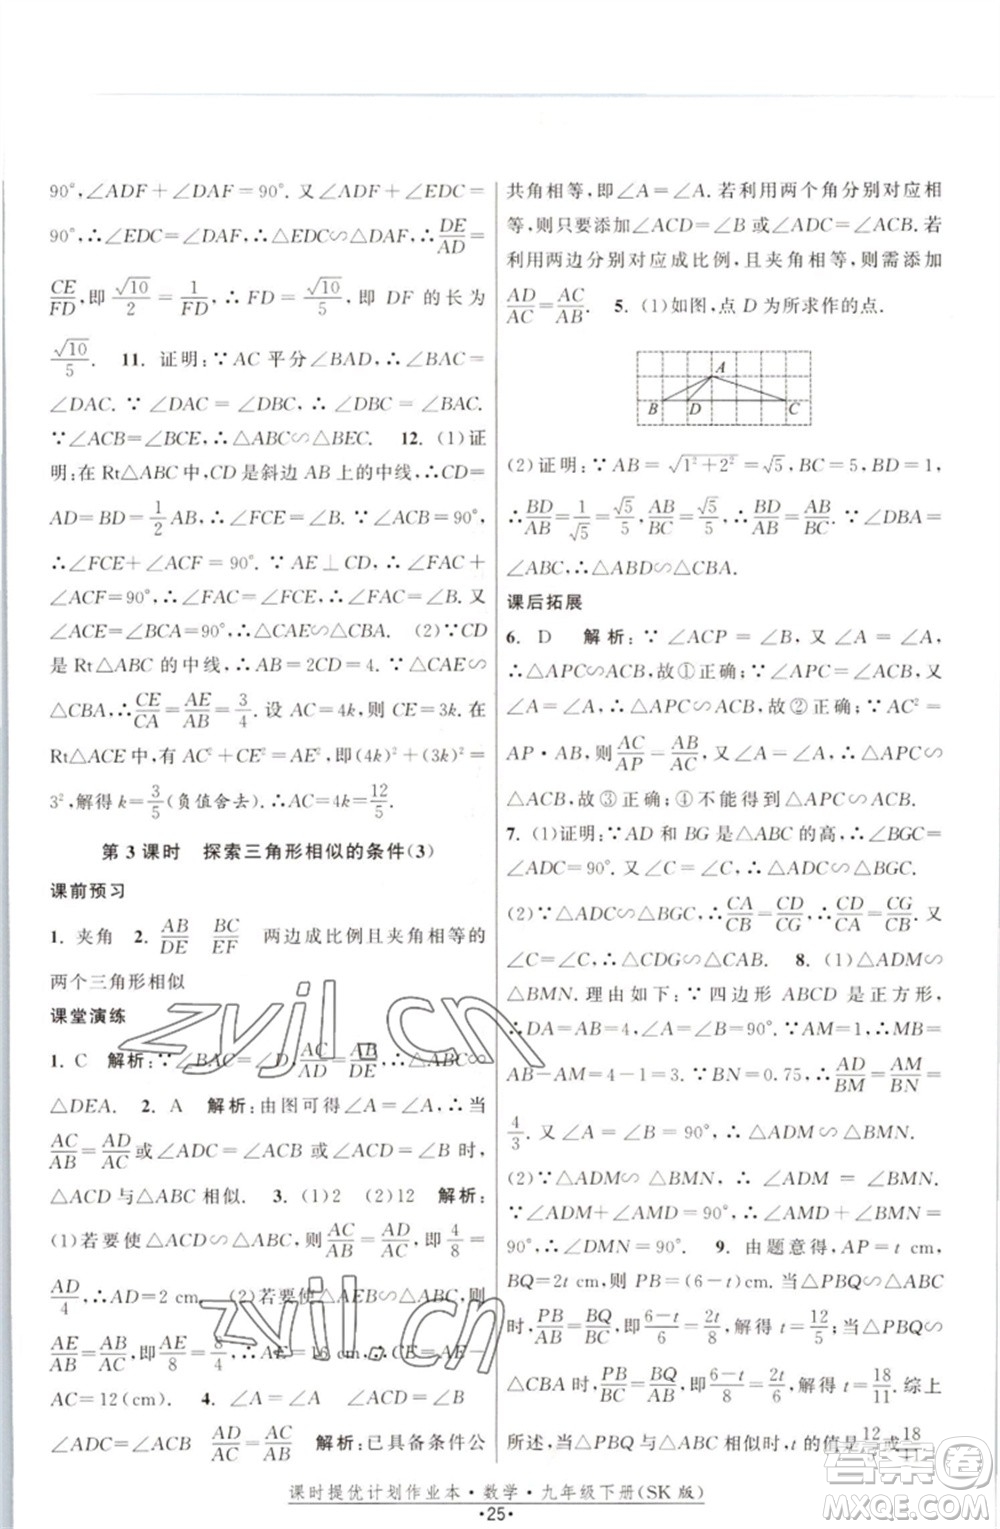 90°,∠ADF+∠DAF=90°. 又∠ADF+∠EDC=
90°,∴∠EDC=∠DAF,∴△EDC∽△DAF,∴DE/AD=
CE/FD,即√10/2=1/FD,∴FD=√10/5,即 DF 的长为
√10/5. 11. 证明:∵AC 平分∠BAD,∴∠BAC=
∠DAC. ∵∠DAC=∠DBC,∴∠BAC=∠DBC.
∵∠ACB=∠BCE,∴△ABC∽△BEC. 12. (1)证
明:在 Rt△ABC 中,CD 是斜边 AB 上的中线,∴CD=
AD=BD=1/2AB,∴∠FCE=∠B. ∵∠ACB=90°,
∴∠FCE+∠ACF=90°. ∵AE⊥CD,∴∠CAF+
∠ACF=90°. ∴∠FCE=∠CAF,∴∠CAF=∠B. 又
∵∠ACE=∠BCA=90°,∴△CAE∽△CBA. (2)∵CD
是 Rt△ABC 的中线,∴AB=2CD=4. ∵△CAE∽
△CBA,∴CE/CA=AE/AB=3/4. 设 AC=4k,则 CE=3k. 在
Rt△ACE 中,有 AC²+CE²=AE²,即(4k)²+(3k)²=
3²,解得 k=3/5(负值舍去). ∴AC=4k=12/5.
第 3 课时 探索三角形相似的条件(3)
课前预习
1. 夹角 2. AB/DE BC/EF 两边成比例且夹角相等的
两个三角形相似
课堂演练
1. C 解析:∵∠BAC=∠D,AC/AD=AB/DE,∴△ABC∽
△DEA. 2. A 解析:由图可得∠A=∠A,∴当
AC/AB=AD/AC或∠ADC=∠ACB 或∠ACD=∠B 时,
△ACD 与△ABC 相似. 3. (1)2 (2)12 解析:
(1)若要使△ACD∽△ABC,则AC/AB=AD/AC,即4/8=
AD/4,∴AD=2 cm. (2)若要使△AEB∽△ABC,则
AE/AB=AB/AC,即AE/8=8/4,∴AE=16 cm,∴
AC=12(cm). 4. ∠A=∠A ∠ACD=∠B
∠ADC=∠ACB AD/AC=AC/AB 解析:已具备条件公
共角相等,即∠A=∠A. 若利用两个角分别对应相
等,则只要添加∠ACD=∠B 或∠ADC=∠ACB. 若
利用两边分别对应成比例,且夹角相等,则需添加
AD/AC=AC/AB. 5. (1)如图,点 D 为所求作的点.
A
B D C
(2)证明:∵AB=√1²+2²=√5,BC=5,BD=1,
∴BD/AB=1/√5=√5/5,AB/BC=√5/5,∴BD/AB=AB/BC. ∵∠DBA=
∠ABC,∴△ABD∽△CBA.
课后拓展
6. D 解析:∵∠ACP=∠B,又∠A=∠A,
∴△APC∽△ACB,故①正确;∵∠APC=∠ACB,
又∠A=∠A,∴△APC∽△ACB,故②正确;∵AC²=
AP·AB,则AC/AP=AB/AC,又∠A=∠A,∴△APC∽
△ACB,故③正确;④不能得到△APC∽△ACB.
7. (1)证明:∵AD 和 BG 是△ABC 的高,∴∠BGC=
∠ADC=90°. 又∠C=∠C,∴△ADC∽△BGC.
(2)∵△ADC∽△BGC,∴CA/CB=CD/CG,∴CD/CA=CG/CB. 又
∠C=∠C,∴△CDG∽△CAB. 8. (1)△ADM∽
△BMN. 理由如下:∵四边形 ABCD 是正方形,
∴DA=AB=4,∠A=∠B=90°. ∵AM=1,∴MB=
AB-AM=4-1=3. ∵BN=3/4,∴AD/BM=AM/BN=
4/3. 又∠A=∠B=90°,∴△ADM∽△BMN.
(2)∵△ADM∽△BMN,∴∠ADM=∠BMN.
∵∠ADM+∠AMD=90°,∴∠AMD+∠BMN=
90°,∴∠DMN=90°. 9. 由题意得,AP=t cm,
BQ=2t cm,则 PB=(6-t)cm. 当△PBQ∽△ABC
时,PB/AB=BQ/BC,即6-t/6=2t/8,解得 t=12/5;当△PBQ∽
△CBA 时,PB/BC=BQ/AB,即6-t/8=2t/6,解得 t=18/11. 综上
所述,当△PBQ 与△ABC 相似时,t 的值是12/5或18/11.
课时提优计划作业本·数学·九年级下册(SK 版)
·25·
zyjl.cn
zyjl.cn
答案圈
MXQE.COM